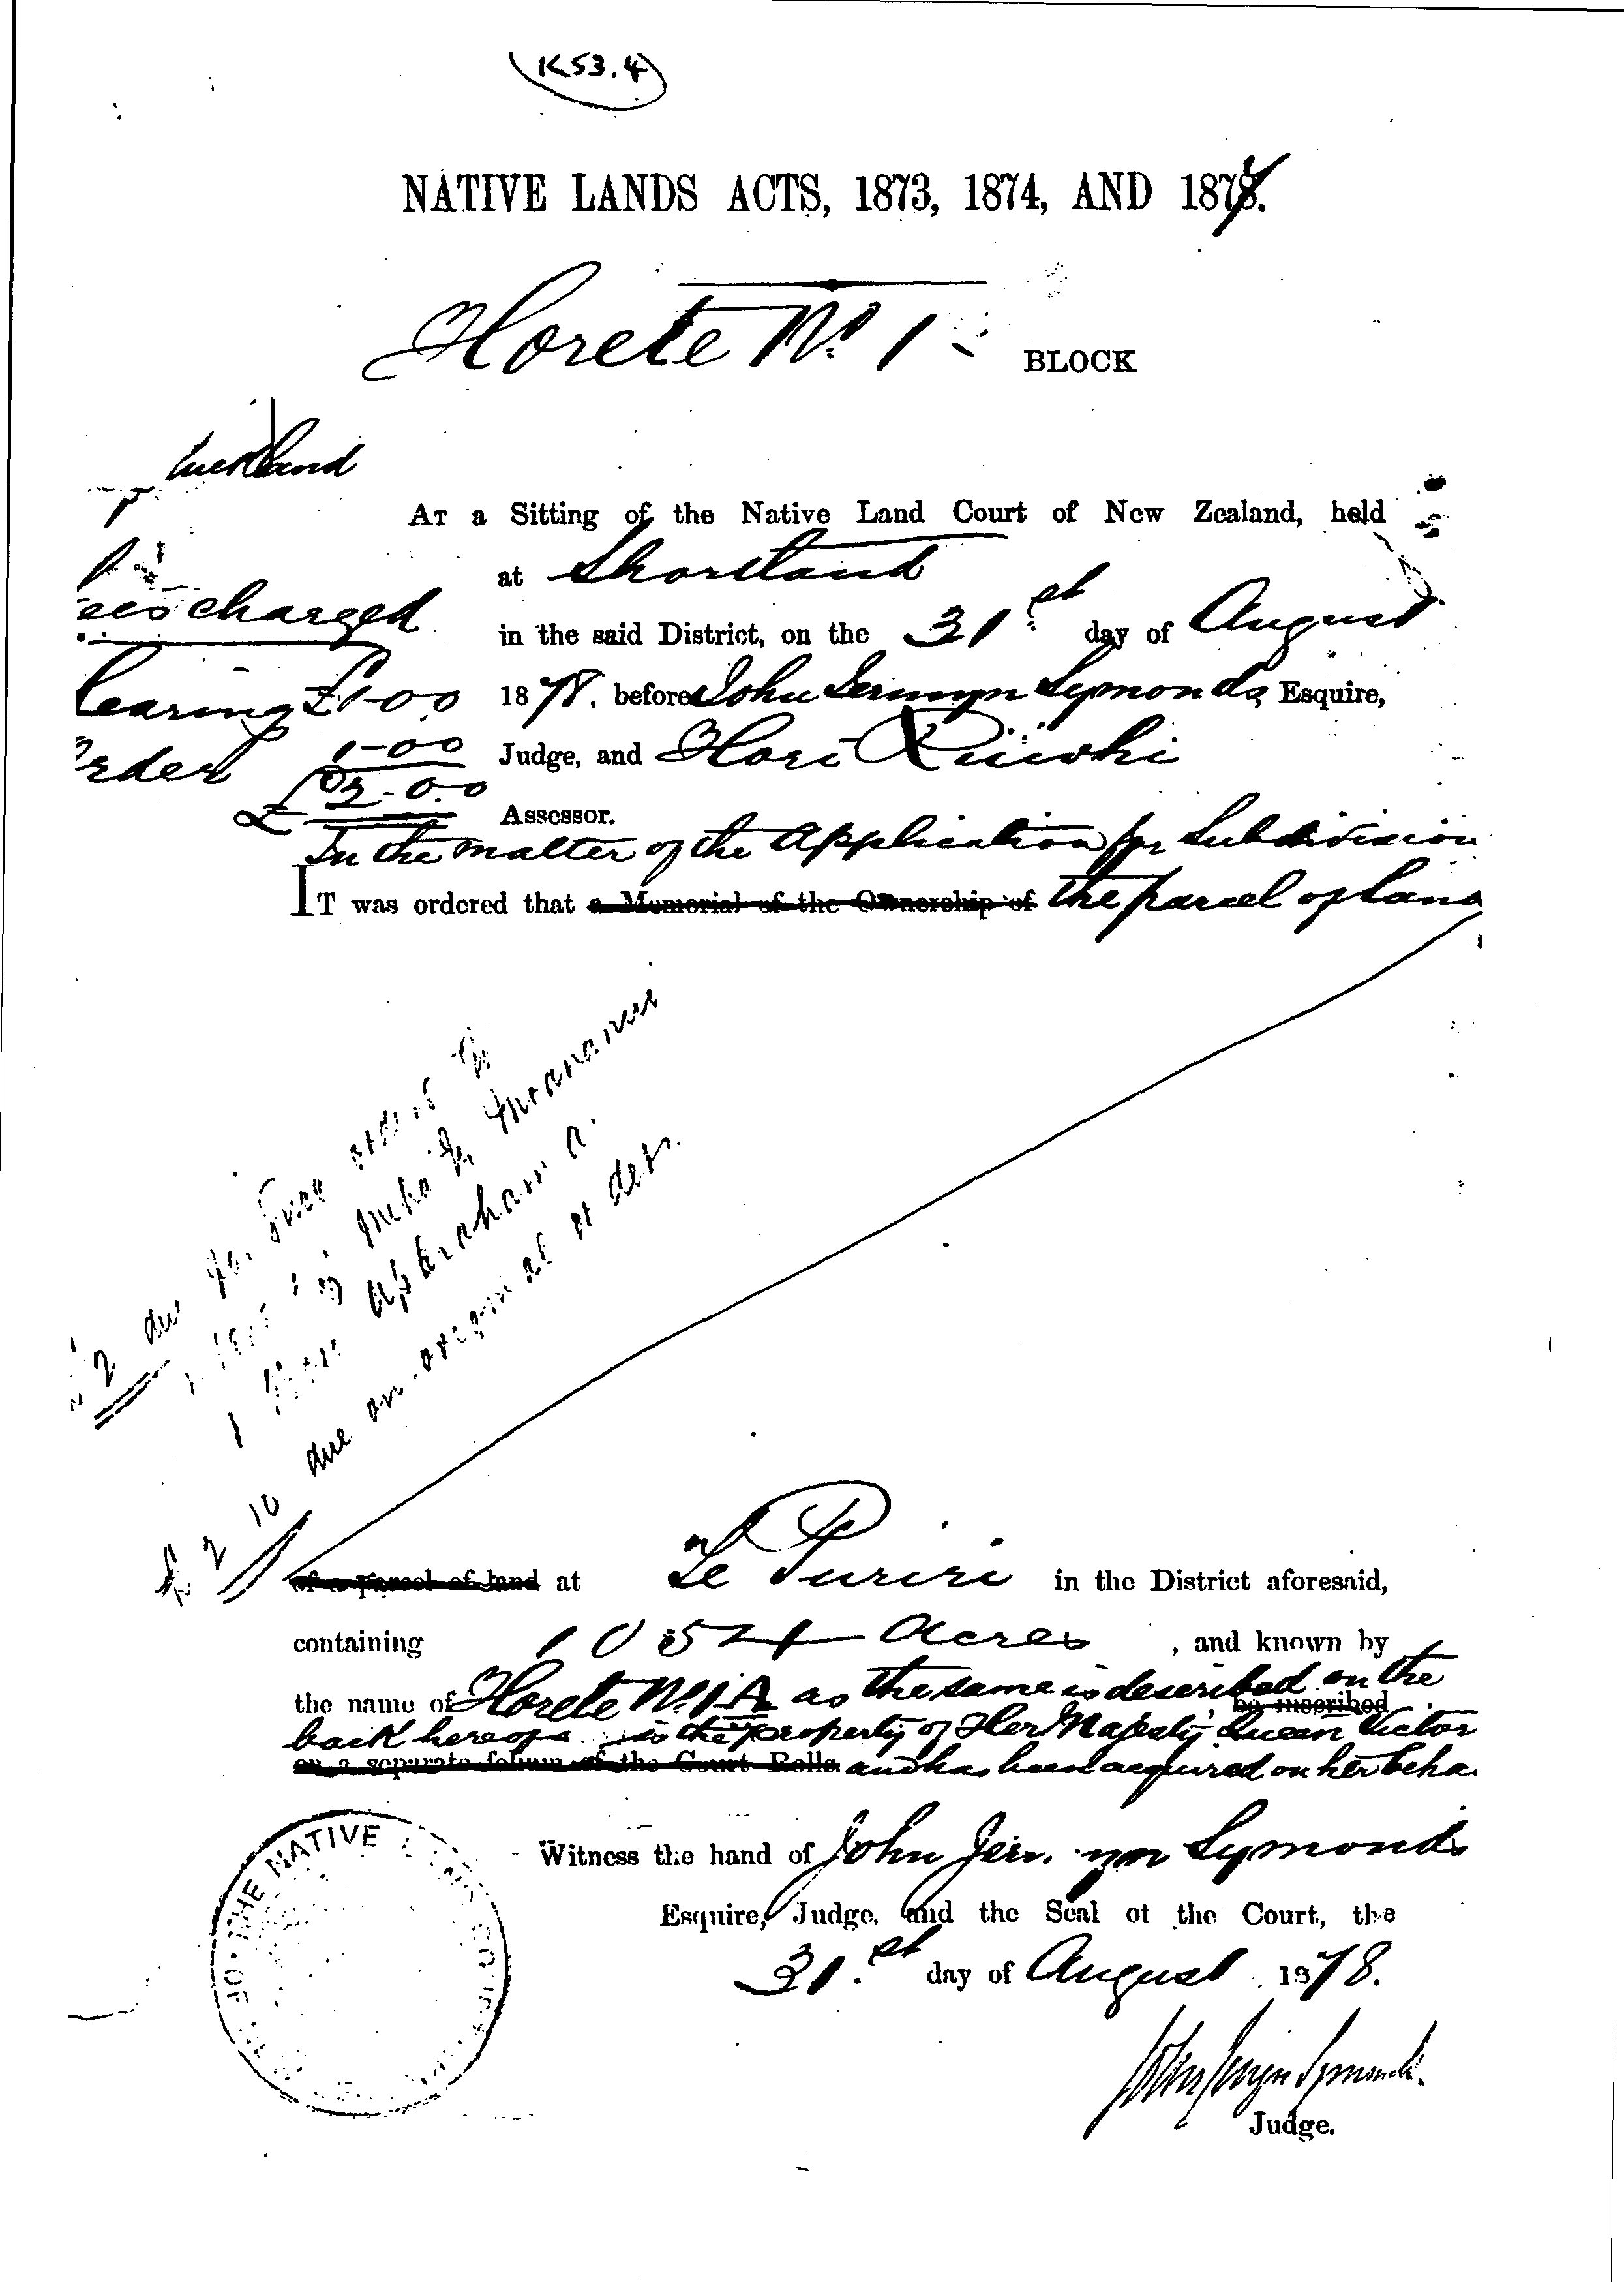 K53.4
NATIVE LANDS ACTS, 1873, 1874, AND 1878.
Horete No. 1 BLOCK
AT a Sitting of the Native Land Court of New Zealand, held
at Shortland
ees charged
in the said District, on the 31st day of August
earing £1-00
1878, before John Jermyn Symonds, Esquire,
rder 1-00
Judge, and Hori
£2-0.0
Assessor.
In the matter of the Application for Subdivision
IT was ordered that a Memorial of the Ownership of the parcel of land
£2 10 due on original order.
of a parcel of land at Te Puriri in the District aforesaid,
containing 1054 Acres, and known by
the name of Horete No. 1A as the same is described on the
be inscribed
back hereof is the property of Her Majesty Queen Victor
on a separate folium of the Court Rolls and has been acquired on her beha
Witness the hand of John Jermyn Symonds
Esquire, Judge, and the Seal of the Court, the
31st day of August 1878.
John Jermyn Symonds.
Judge.
OF THE NATIVE LAND COURT